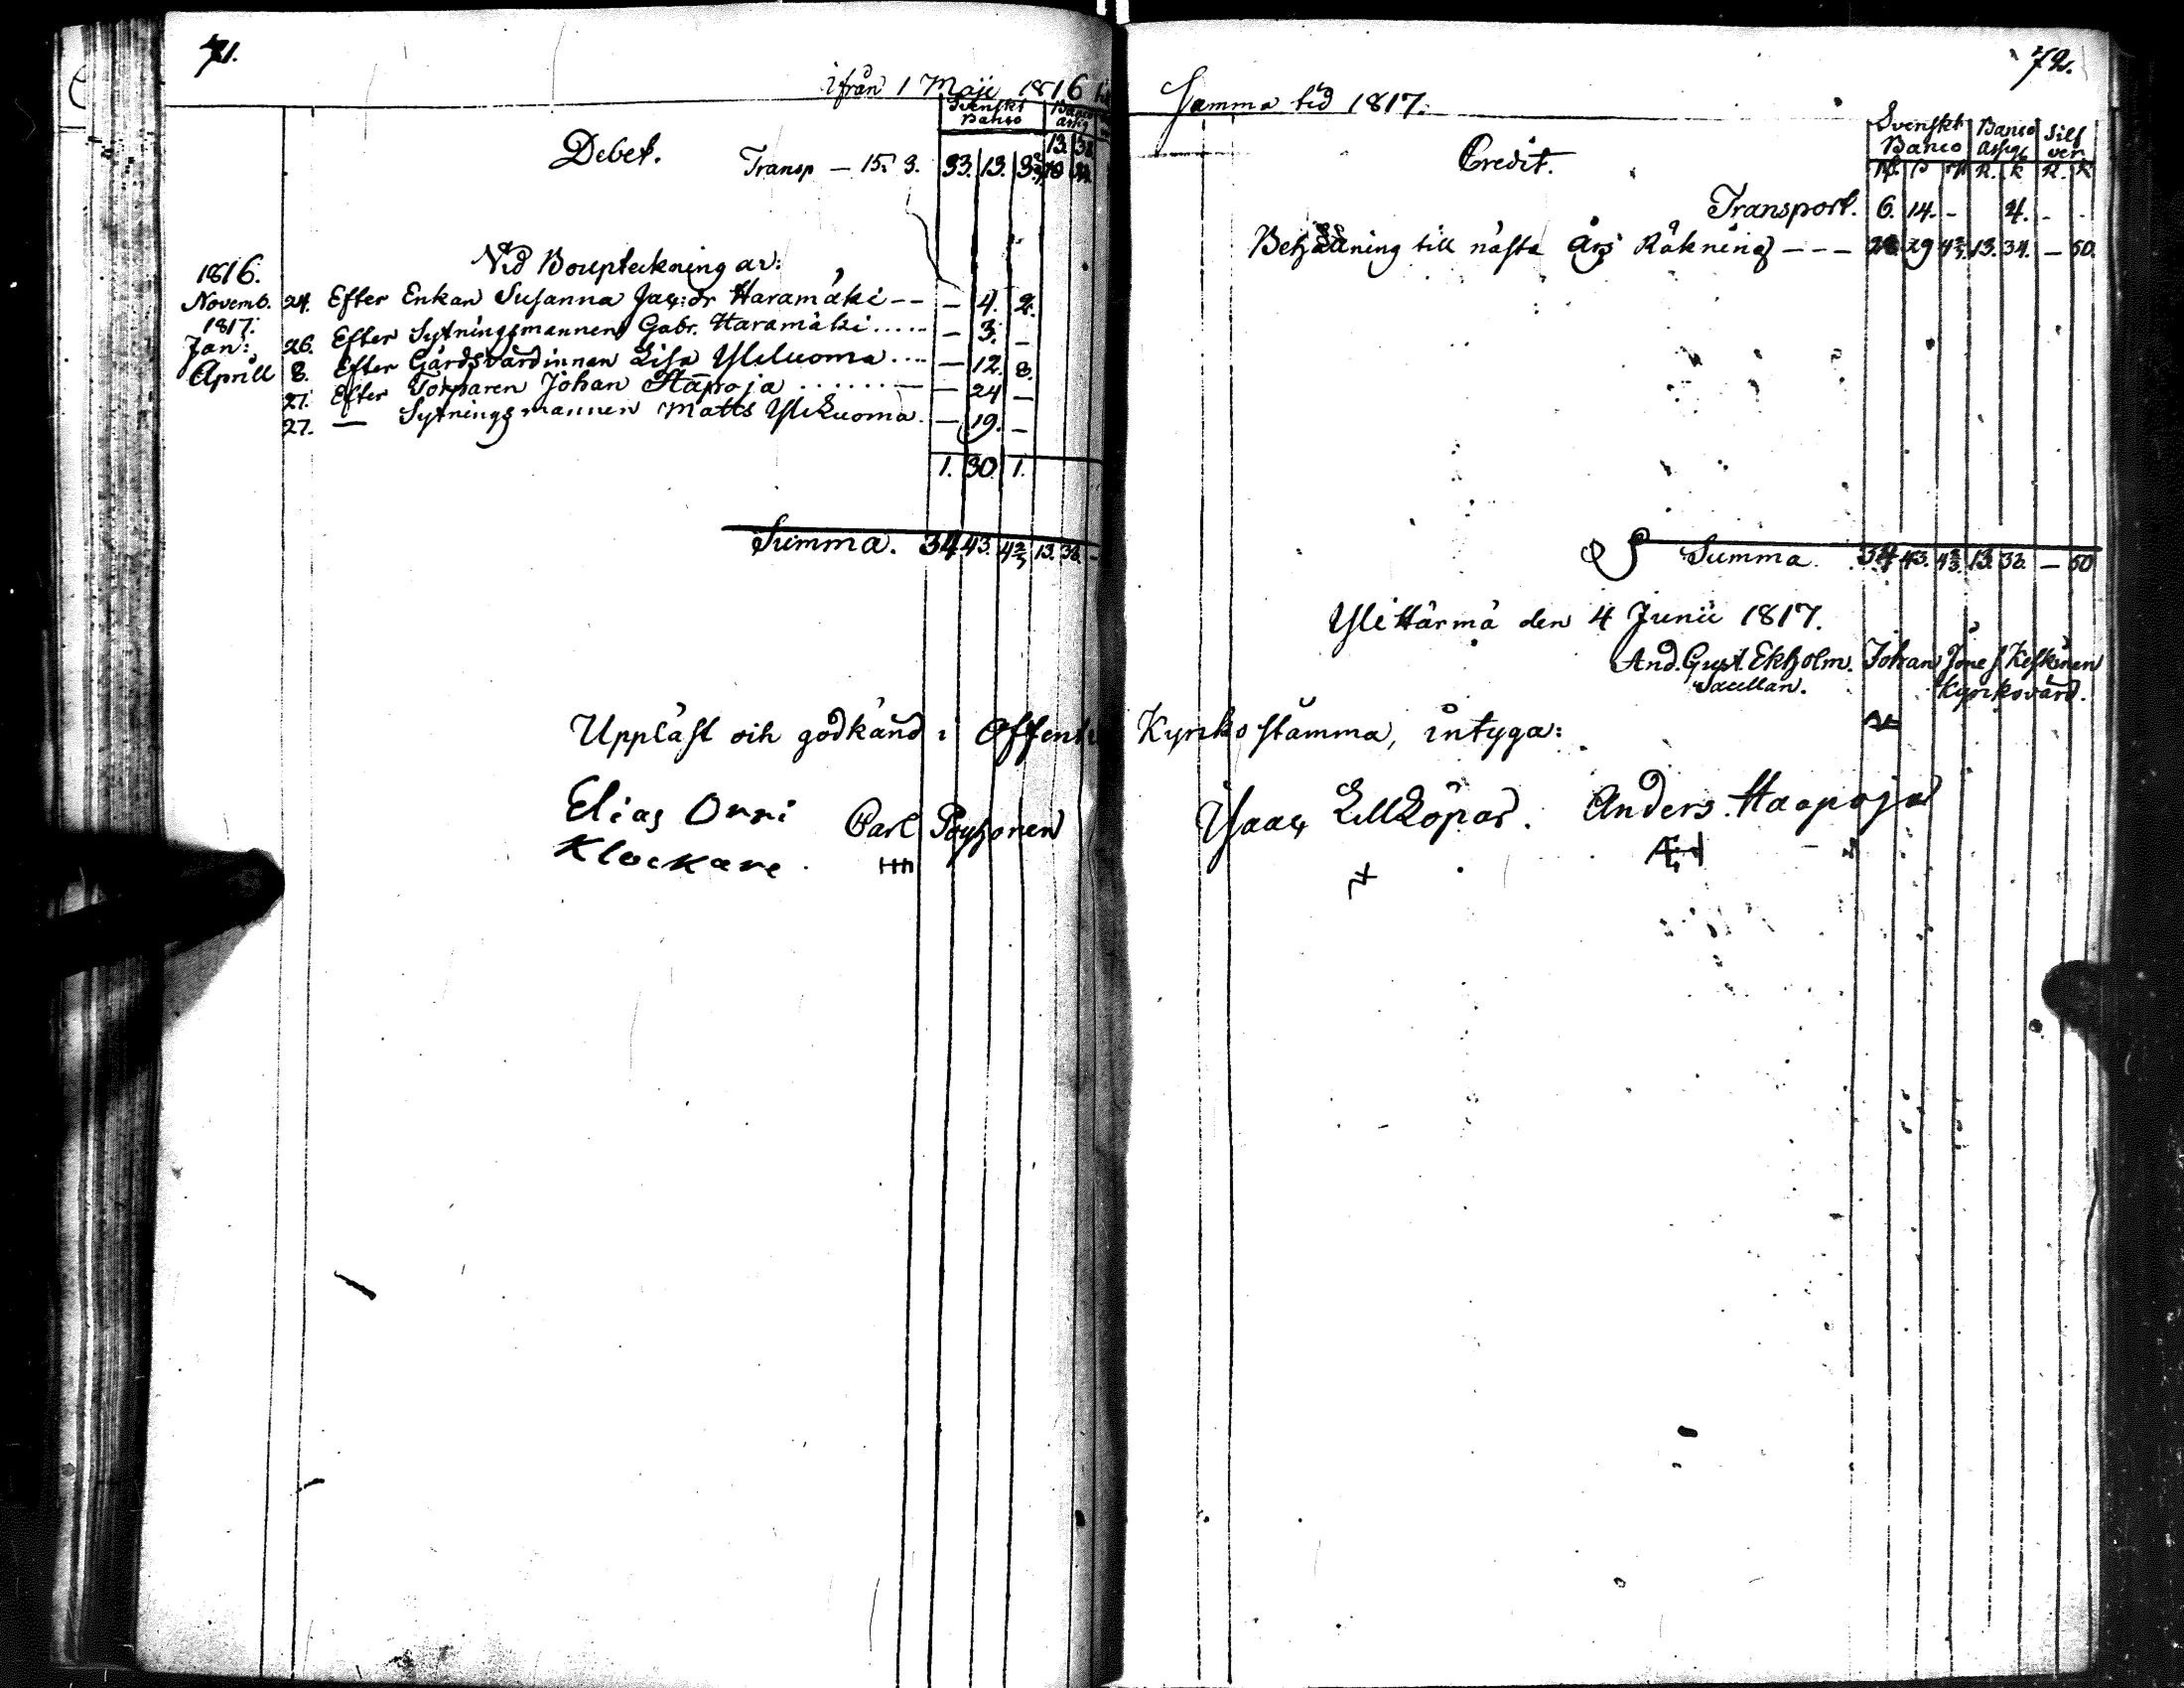 71.
ifrån 1 Maji 1816 til
Svenskt Banco Banco assig
Debet.
13. 38.
Transp - 15. 3. 33. 13. 3 2/3
Vid Bouptekningar:
1816.
Novemb. 24. Efter Enkan Susanna Jac:dr Haramäki -- - 4. 2.
1817.
Jan: 26. Efter Sytningsmannen Gabr. Haramäki ..... - 3. -
Aprill 8. Efter Gårdsvärdinnan Lisa Yliluoma .... - 12. 8.
27. Efter Torparen Johan Hapoja ....... - 24 -
27. — Sytningsmannen Matts Yliluoma. - 19. -
1. 30. 1.
Summa. 34 43. 4 2/3 13. 38. -
Uppläst och godkänd i Offentl
Elias Orri Carl Pöyhönen
Klockare.
72.
Samma tid 1817.
Svenskt Banco Banco assig Silfver
Credit.
R. K R. K
Transport. 6. 14. - 4. - -
Behållning till nästa års Räkning --- 28. 29 4 2/3. 13. 34. - 50.
Summa 34 43. 4 2/3. 13. 38. - 50
Ylihärmä den 4 Junii 1817.
And. Gust. Ekholm. Johan Jöns Keskinen
Sacellan. Kyrkovärd.
Kyrkostämma, intyga:
Isaac Lillkopas. Anders Haapoja